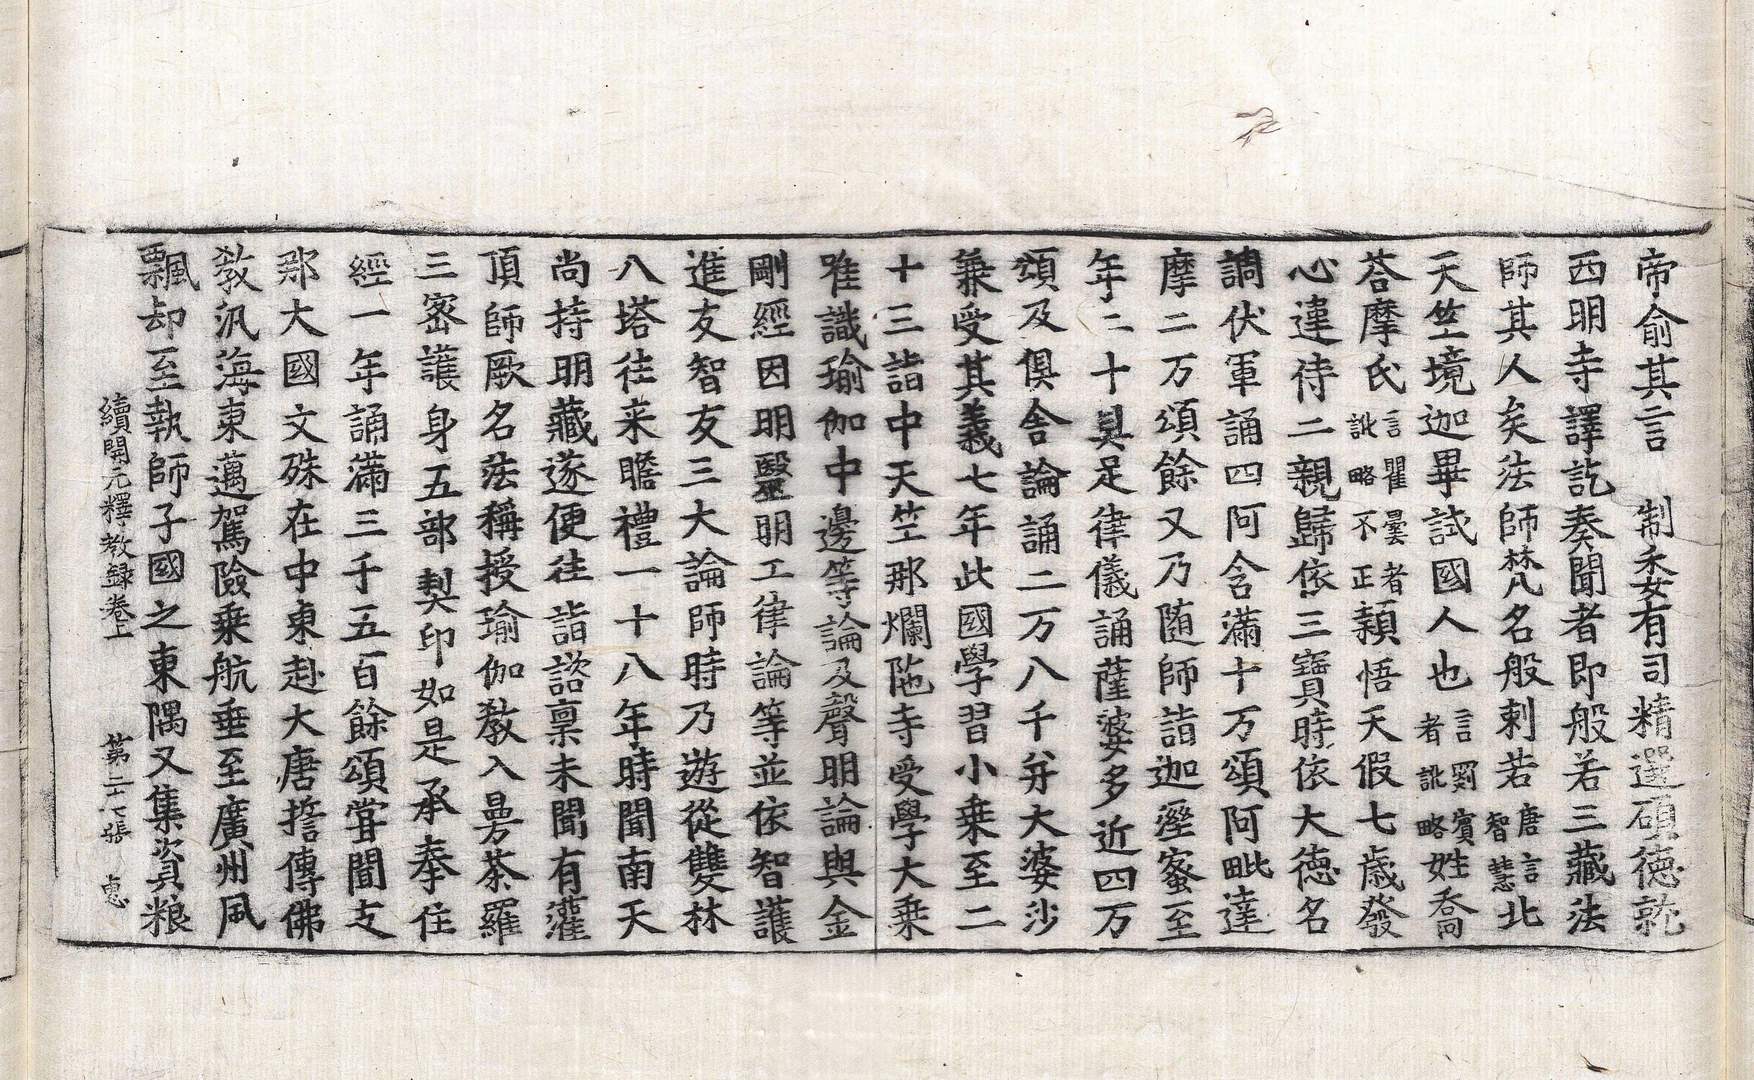 帝俞其言　制委有司精選碩德就
西明寺譯訖奏聞者即般若三藏法
師其人矣法師梵名般剌若唐言智慧北
天竺境迦畢試國人也言罽賓者訛略姓喬
荅摩氏言瞿曇者訛略不正穎悟天假七歲發
心違侍二親歸依三寶時依大德名
調伏軍誦四阿含滿十万頌阿毗達
摩二万頌餘又乃随師詣迦溼蜜至
年二十具足律儀誦薩婆多近四万
頌及俱舍論誦二万八千并大婆沙
兼受其義七年此國學習小乗至二
十三詣中天竺那爛陁寺受學大乗
唯識瑜伽中邊等論及聲明論與金
剛經因明毉明工律論等並依智護
進友智友三大論師時乃遊從雙林
八塔往来瞻禮一十八年時聞南天
尚持明藏遂便往詣諮稟未聞有灌
頂師厥名法稱授瑜伽教入曼荼羅
三密護身五部契印如是承奉住
經一年誦滿三千五百餘頌甞聞支
那大國文殊在中東赴大唐擔傳佛
教汎海東邁駕險乗航垂至廣州風
飄却至執師子國之東隅又集資粮
續開元釋教録卷上　第二十七張　惠